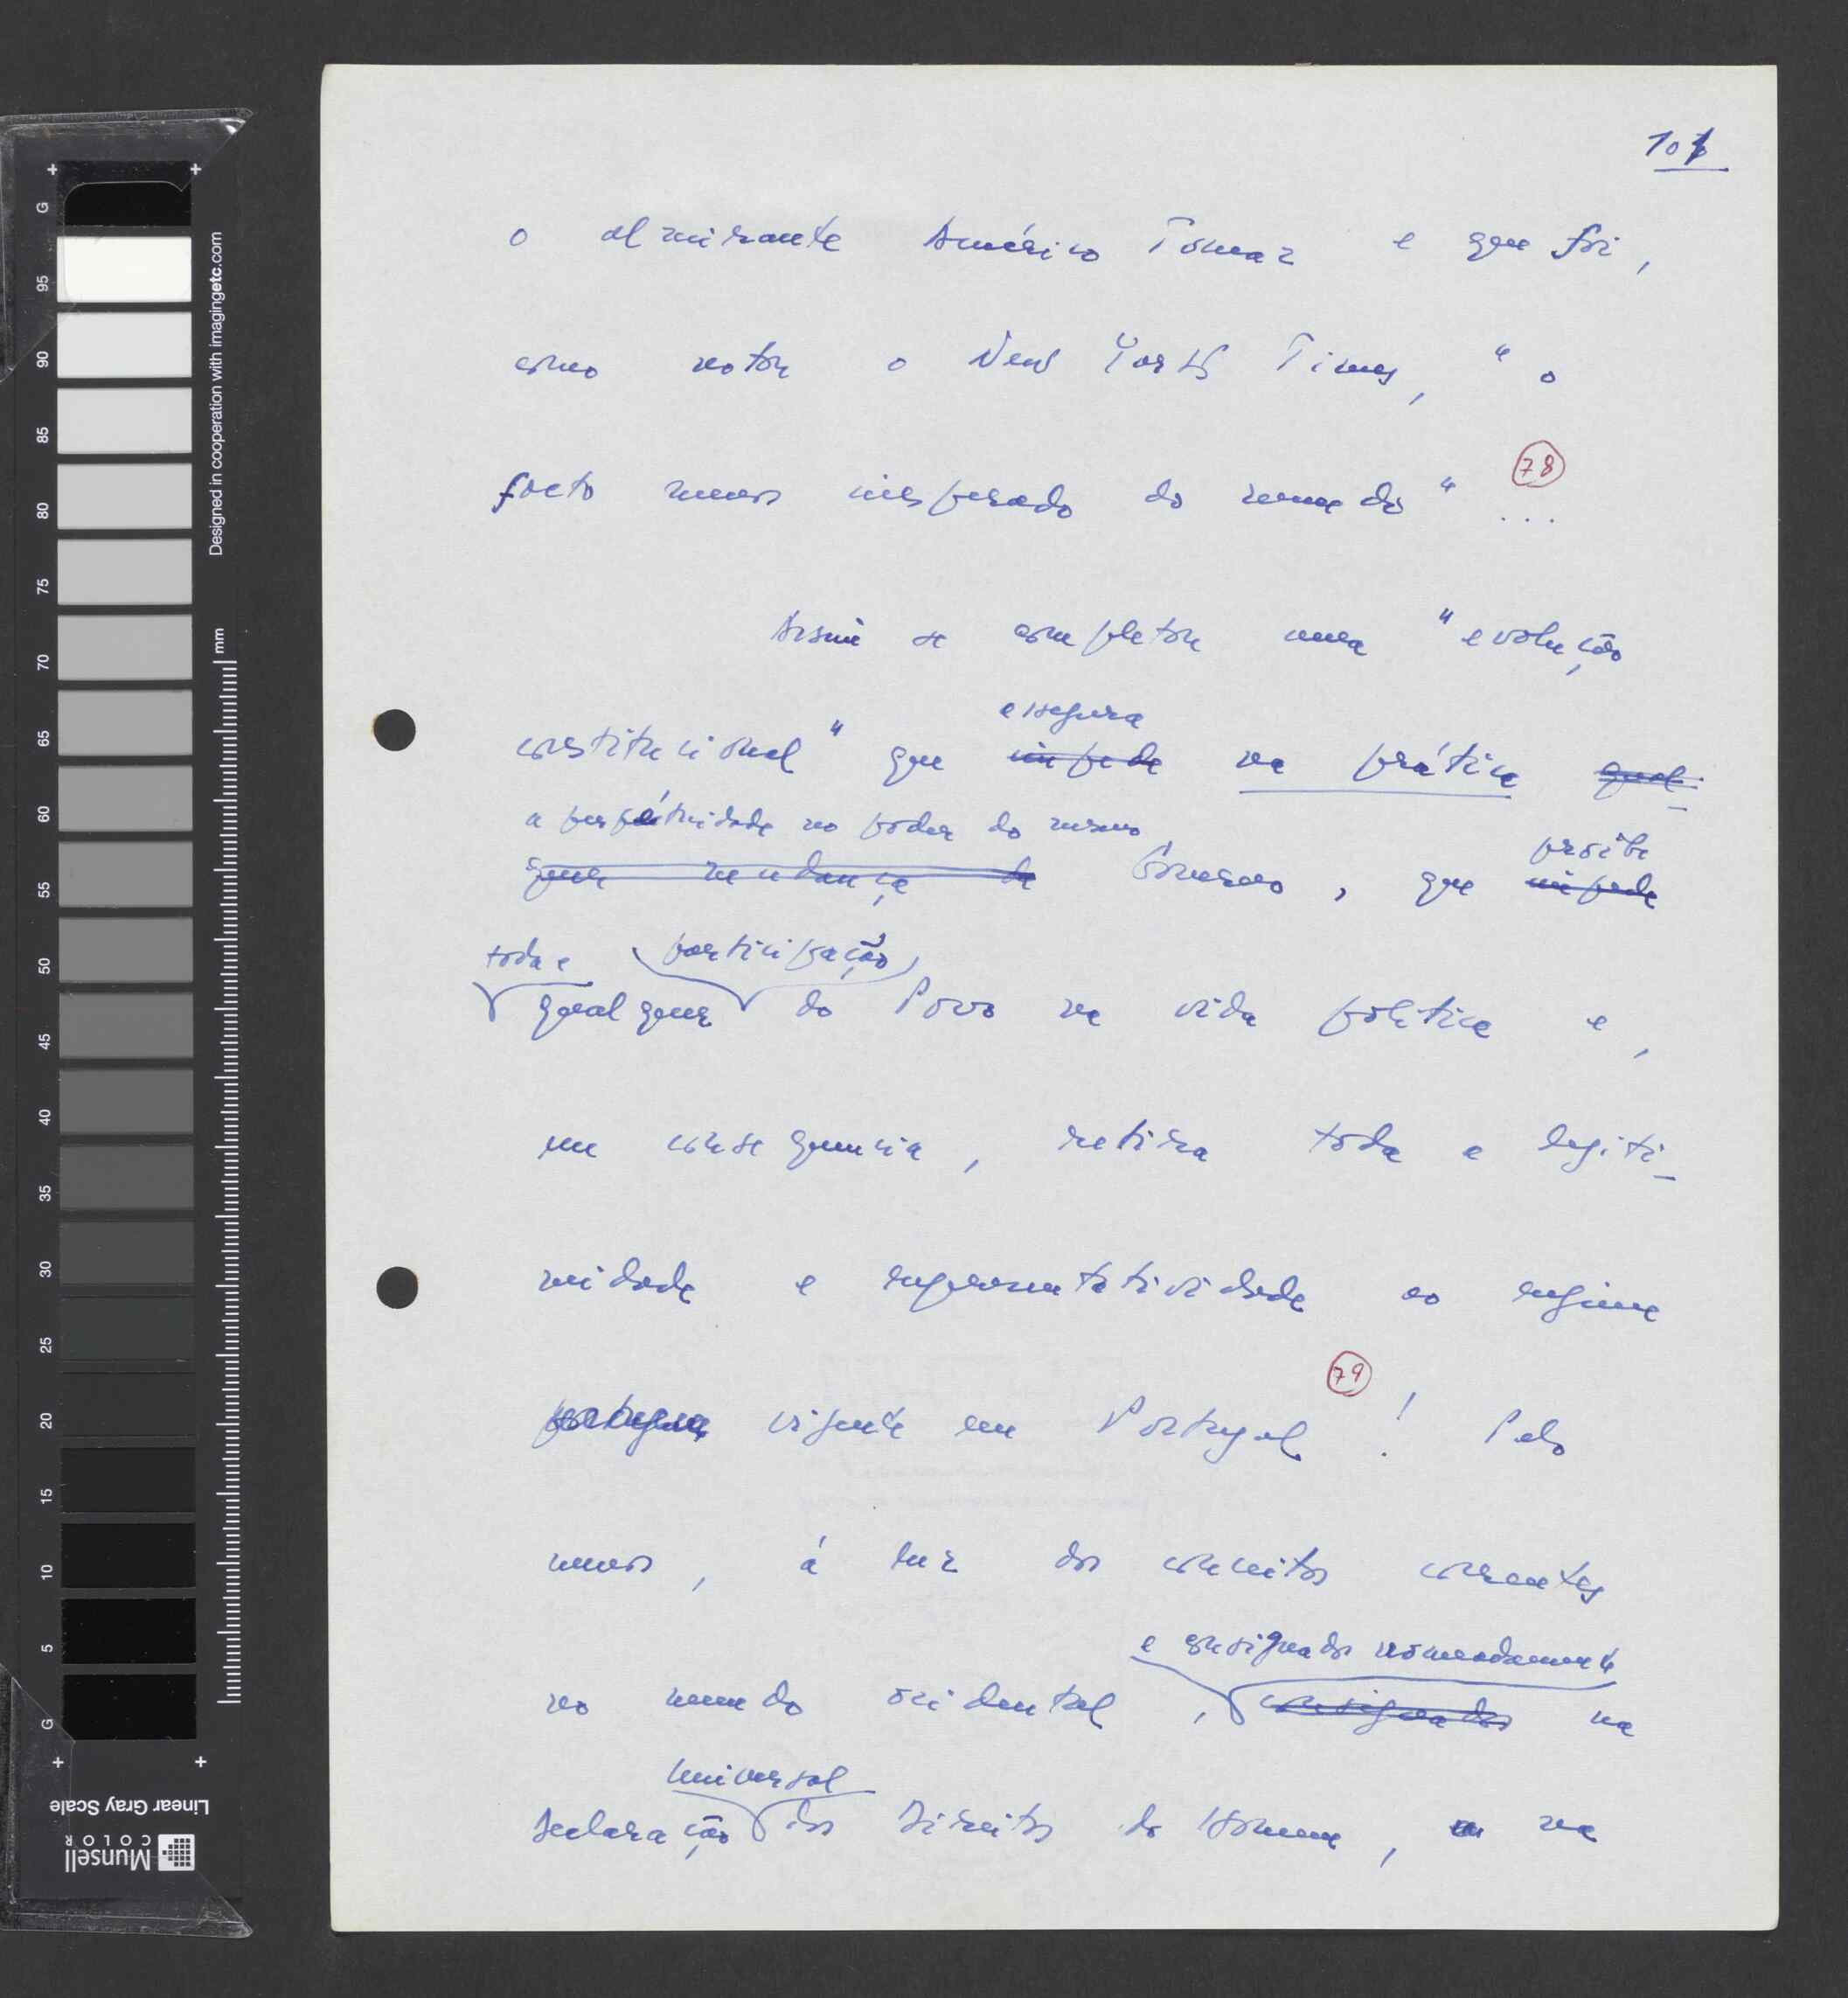 101
o almirante Américo Tomaz e que foi,
como notou o New York Times, "o
facto menos inesperado do mundo" (78) ...
Assim se completou uma "evolução
assegura
constitucional" que impede na prática qual-
a perpétuidade no poder do mesmo
quer mudança de Governo, que impede
proíbe
toda e participação
qualquer do Povo na vida política e,
em consequência, retira toda a legiti-
midade e representatividade ao regime
portugues vigente em Portugal (79)! Pelo
menos, á luz dos conceitos correntes
e consignados nomeadamente
no mundo ocidental, consignados na
Universal
Declaração dos Direitos do Homem, na
Designed in cooperation with imagingetc.com
mm
G 95 90 85 80 75 70 65 60 55 50 45 40 35 30 25 20 15 10 5 G
Linear Gray Scale
Munsell
COLOR